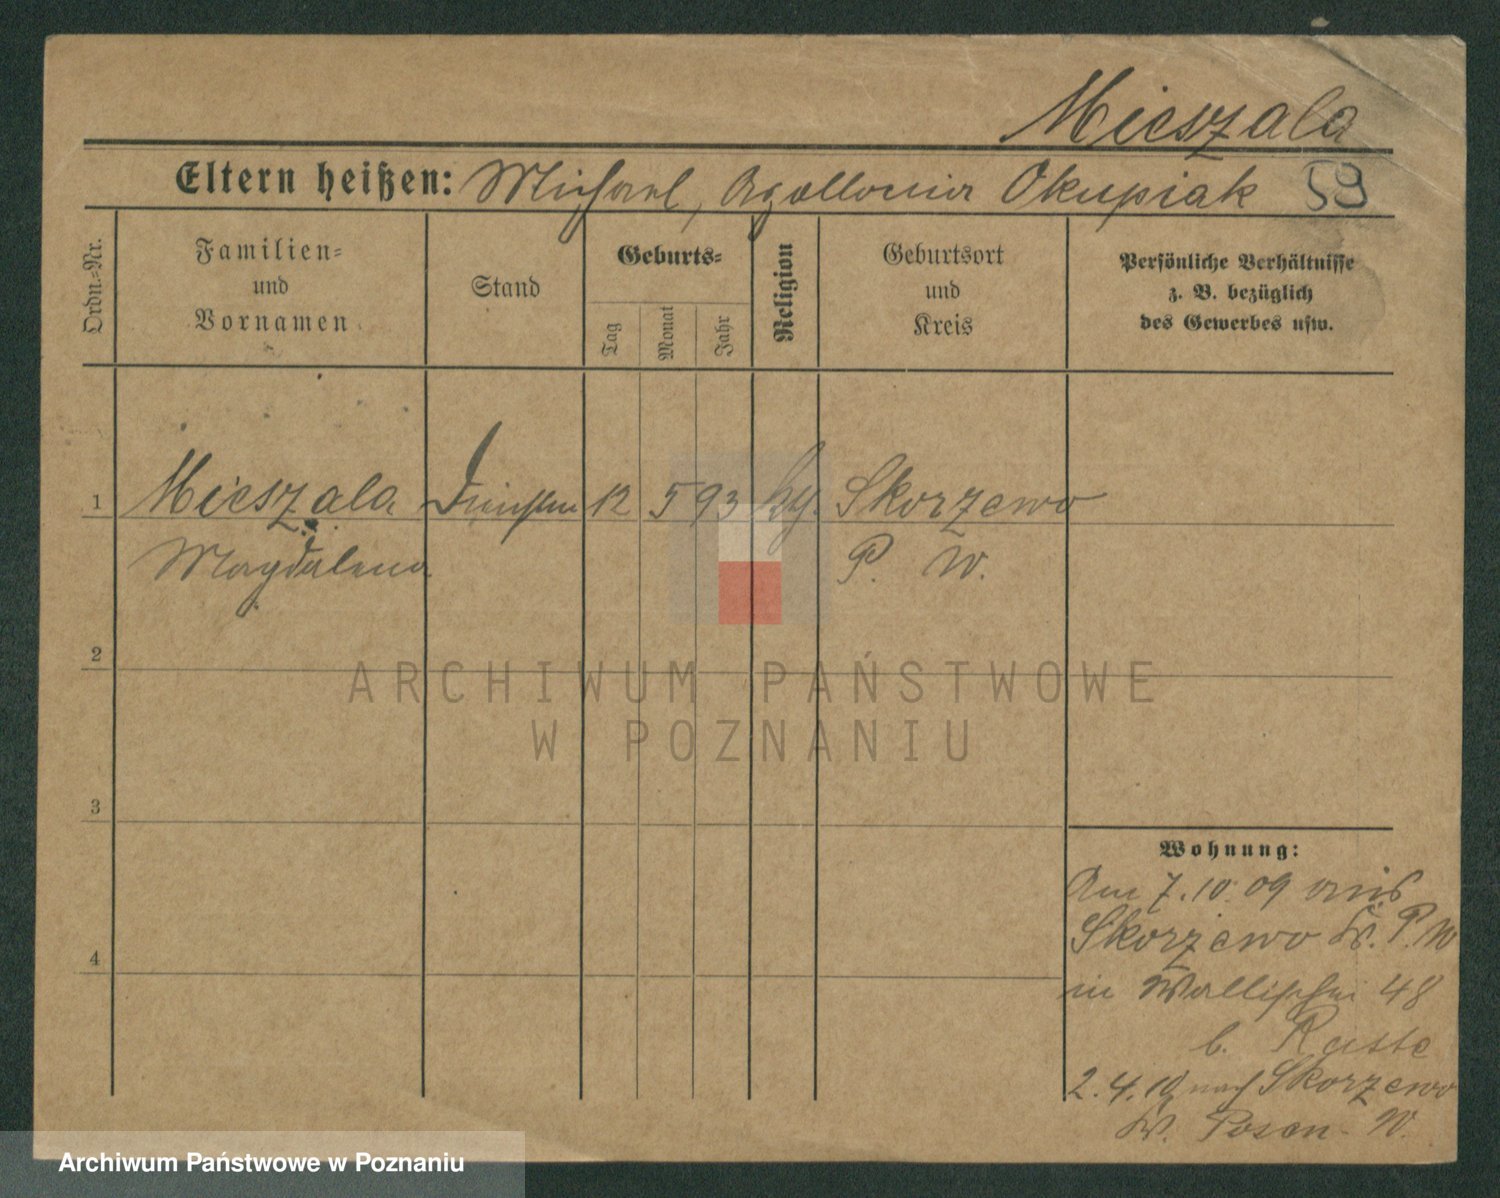 Mieszala
Eltern heißen: Michael, Apollonia Okupiak 59
Ordn.-Nr.
Familien-
und
Vornamen
Stand
Geburts-
Tag
Monat
Jahr
Religion
Geburtsort
und
Kreis
Persönliche Verhältnisse
z. B. bezüglich
des Gewerbes usw.
1 Mieszala 12 5 93 Skorzewo
Magdalena P. W.
2
3
4
Wohnung:
Am 7.10.09 aus
Skorzewo Kr. P. W
in Wallischei 48
b.
2.4.10 nach Skorzewo
Kr. Posen-W.
ARCHIWUM PAŃSTWOWE
W POZNANIU
Archiwum Państwowe w Poznaniu